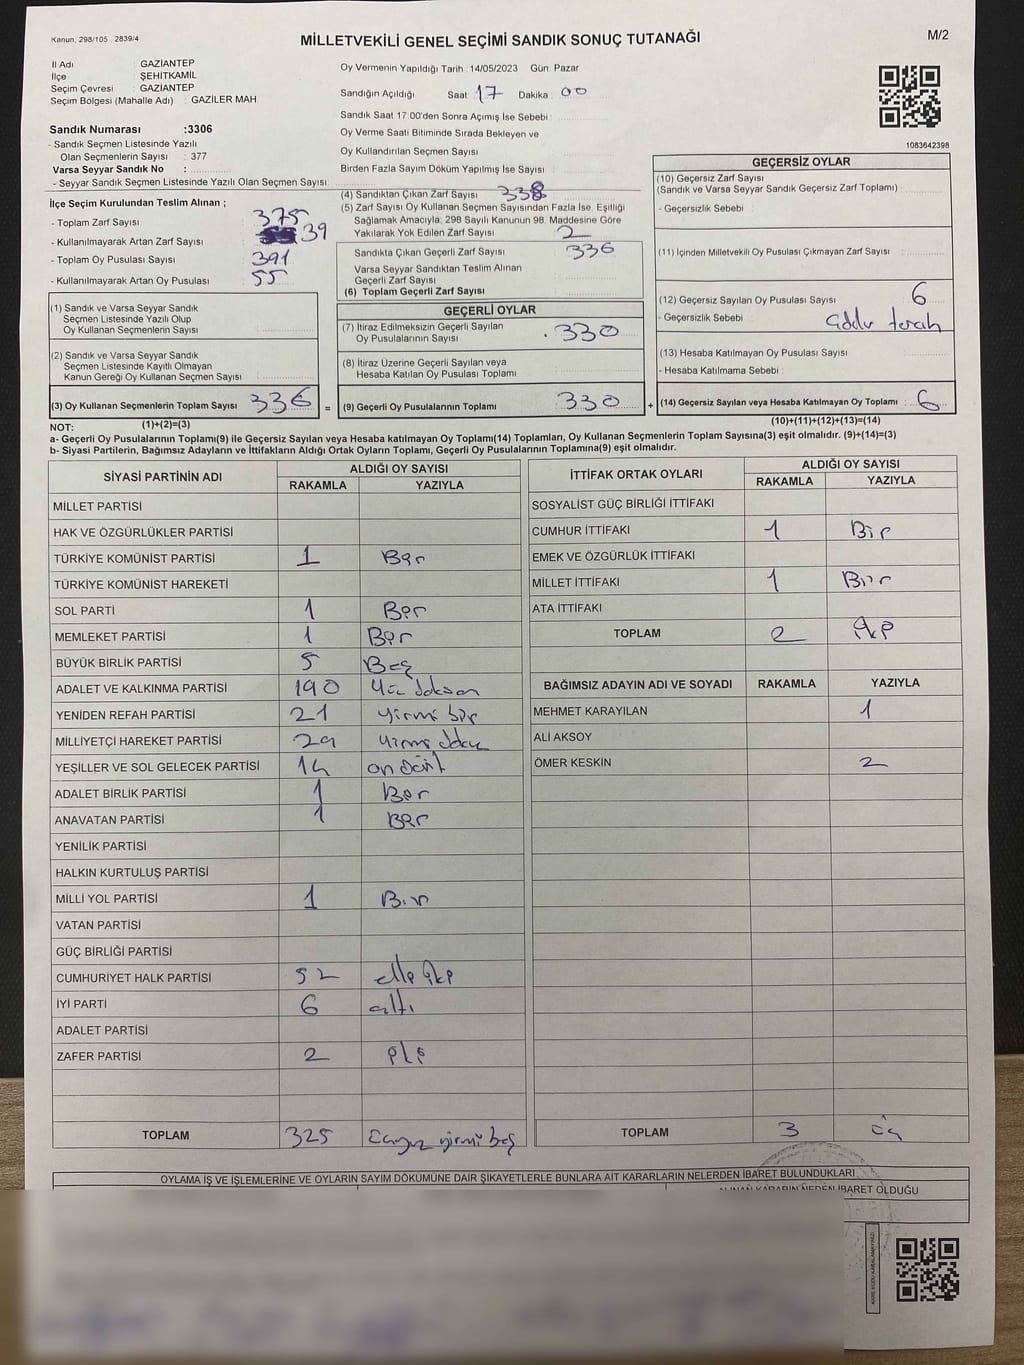 Kanun, 298/105 . 2839/4
MİLLETVEKİLİ GENEL SEÇİMİ SANDIK SONUÇ TUTANAĞI
M/2
İl Adı : GAZİANTEP
İlçe : ŞEHİTKAMİL
Seçim Çevresi : GAZİANTEP
Seçim Bölgesi (Mahalle Adı) : GAZİLER MAH
Sandık Numarası :3306
- Sandık Seçmen Listesinde Yazılı
Olan Seçmenlerin Sayısı : 377
Varsa Seyyar Sandık No :
- Seyyar Sandık Seçmen Listesinde Yazılı Olan Seçmen Sayısı :
İlçe Seçim Kurulundan Teslim Alınan ;
- Toplam Zarf Sayısı 375
- Kullanılmayarak Artan Zarf Sayısı 39
- Toplam Oy Pusulası Sayısı 391
- Kullanılmayarak Artan Oy Pusulası 55
(1) Sandık ve Varsa Seyyar Sandık
Seçmen Listesinde Yazılı Olup
Oy Kullanan Seçmenlerin Sayısı :
(2) Sandık ve Varsa Seyyar Sandık
Seçmen Listesinde Kayıtlı Olmayan
Kanun Gereği Oy Kullanan Seçmen Sayısı :
(3) Oy Kullanan Seçmenlerin Toplam Sayısı 336 =
(1)+(2)=(3)
Oy Vermenin Yapıldığı Tarih : 14/05/2023 Gün: Pazar
Sandığın Açıldığı Saat 17 Dakika : 00
Sandık Saat 17.00'den Sonra Açılmış İse Sebebi :
Oy Verme Saati Bitiminde Sırada Bekleyen ve
Oy Kullandırılan Seçmen Sayısı :
Birden Fazla Sayım Döküm Yapılmış İse Sayısı :
(4) Sandıktan Çıkan Zarf Sayısı : 338
(5) Zarf Sayısı Oy Kullanan Seçmen Sayısından Fazla İse, Eşitliği
Sağlamak Amacıyla, 298 Sayılı Kanunun 98. Maddesine Göre
Yakılarak Yok Edilen Zarf Sayısı : 2
Sandıkta Çıkan Geçerli Zarf Sayısı : 336
Varsa Seyyar Sandıktan Teslim Alınan
Geçerli Zarf Sayısı :
(6) Toplam Geçerli Zarf Sayısı :
GEÇERLİ OYLAR
(7) İtiraz Edilmeksizin Geçerli Sayılan
Oy Pusulalarının Sayısı : 330
(8) İtiraz Üzerine Geçerli Sayılan veya
Hesaba Katılan Oy Pusulası Toplamı :
(9) Geçerli Oy Pusulalarının Toplamı : 330 +
1083642398
GEÇERSİZ OYLAR
(10) Geçersiz Zarf Sayısı
(Sandık ve Varsa Seyyar Sandık Geçersiz Zarf Toplamı) :
- Geçersizlik Sebebi :
(11) İçinden Milletvekili Oy Pusulası Çıkmayan Zarf Sayısı :
(12) Geçersiz Sayılan Oy Pusulası Sayısı : 6
- Geçersizlik Sebebi :
(13) Hesaba Katılmayan Oy Pusulası Sayısı :
- Hesaba Katılmama Sebebi :
(14) Geçersiz Sayılan veya Hesaba Katılmayan Oy Toplamı : 6
(10)+(11)+(12)+(13)=(14)
NOT:
a- Geçerli Oy Pusulalarının Toplamı(9) ile Geçersiz Sayılan veya Hesaba katılmayan Oy Toplamı(14) Toplamları, Oy Kullanan Seçmenlerin Toplam Sayısına(3) eşit olmalıdır. (9)+(14)=(3)
b- Siyasi Partilerin, Bağımsız Adayların ve İttifakların Aldığı Ortak Oyların Toplamı, Geçerli Oy Pusulalarının Toplamına(9) eşit olmalıdır.
SİYASİ PARTİNİN ADI ALDIĞI OY SAYISI
RAKAMLA YAZIYLA
MİLLET PARTİSİ
HAK VE ÖZGÜRLÜKLER PARTİSİ
TÜRKİYE KOMÜNİST PARTİSİ 1 Bir
TÜRKİYE KOMÜNİST HAREKETİ
SOL PARTİ 1 Bir
MEMLEKET PARTİSİ 1 Bir
BÜYÜK BİRLİK PARTİSİ 5 Beş
ADALET VE KALKINMA PARTİSİ 190 Yüz doksan
YENİDEN REFAH PARTİSİ 21 yirmi bir
MİLLİYETÇİ HAREKET PARTİSİ 29 yirmi dokuz
YEŞİLLER VE SOL GELECEK PARTİSİ 14 on dört
ADALET BİRLİK PARTİSİ 1 Bir
ANAVATAN PARTİSİ 1 Bir
YENİLİK PARTİSİ
HALKIN KURTULUŞ PARTİSİ
MİLLİ YOL PARTİSİ 1 Bir
VATAN PARTİSİ
GÜÇ BİRLİĞİ PARTİSİ
CUMHURİYET HALK PARTİSİ 52 elli iki
İYİ PARTİ 6 altı
ADALET PARTİSİ
ZAFER PARTİSİ 2 iki
TOPLAM 325 üçyüz yirmi beş
İTTİFAK ORTAK OYLARI ALDIĞI OY SAYISI
RAKAMLA YAZIYLA
SOSYALİST GÜÇ BİRLİĞİ İTTİFAKI
CUMHUR İTTİFAKI 1 Bir
EMEK VE ÖZGÜRLÜK İTTİFAKI
MİLLET İTTİFAKI 1 Bir
ATA İTTİFAKI
TOPLAM 2 iki
BAĞIMSIZ ADAYIN ADI VE SOYADI RAKAMLA YAZIYLA
MEHMET KARAYILAN 1
ALİ AKSOY
ÖMER KESKİN 2
TOPLAM 3 üç
OYLAMA İŞ VE İŞLEMLERİNE VE OYLARIN SAYIM DÖKÜMÜNE DAİR ŞİKAYETLERLE BUNLARA AİT KARARLARIN NELERDEN İBARET BULUNDUKLARI
ALINAN KARARIN NEDEN İBARET OLDUĞU